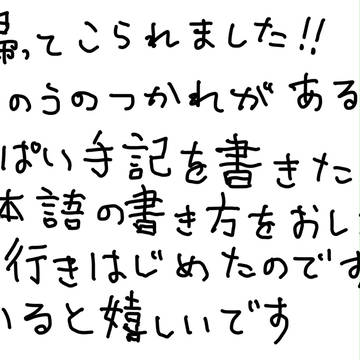 帰ってこられました!!
のうのつかれがある
ぱい手記を書きた
本語の書き方をおし
行きはじめたのです
いると嬉しいです